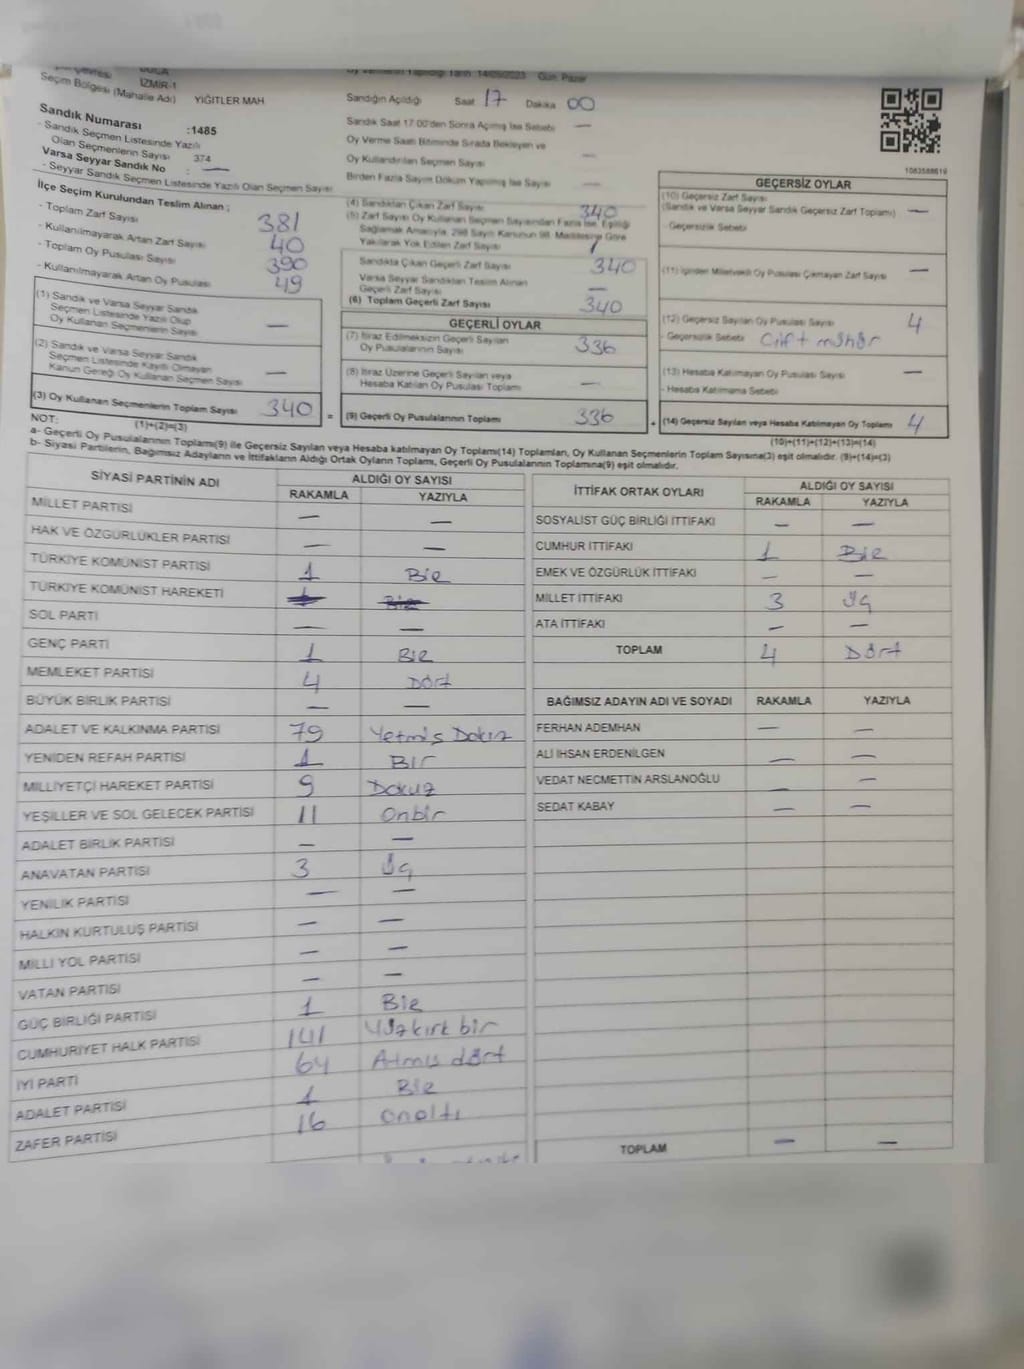 BUCA
Seçim Bölgesi (Mahalle Adı)
İZMİR-1
YİĞİTLER MAH
Oy Vermenin Yapıldığı Tarih 14/05/2023 Gün Pazar
Sandığın Açıldığı Saat 17 Dakika 00
Sandık Saat 17:00'den Sonra Açılmış İse Sebebi —
Oy Verme Saati Bitiminde Sırada Bekleyen ve
Oy Kullandırılan Seçmen Sayısı —
Birden Fazla Sayım Döküm Yapılmış İse Sayısı —
Sandık Numarası :1485
- Sandık Seçmen Listesinde Yazılı
Olan Seçmenlerin Sayısı 374
Varsa Seyyar Sandık No : —
- Seyyar Sandık Seçmen Listesinde Yazılı Olan Seçmen Sayısı
İlçe Seçim Kurulundan Teslim Alınan ;
- Toplam Zarf Sayısı 381
- Kullanılmayarak Artan Zarf Sayısı 40
- Toplam Oy Pusulası Sayısı 390
- Kullanılmayarak Artan Oy Pusulası 49
(1) Sandık ve Varsa Seyyar Sandık
Seçmen Listesinde Yazılı Olup
Oy Kullanan Seçmenlerin Sayısı —
(2) Sandık ve Varsa Seyyar Sandık
Seçmen Listesinde Kayıtlı Olmayan
Kanun Gereği Oy Kullanan Seçmen Sayısı —
(3) Oy Kullanan Seçmenlerin Toplam Sayısı 340 =
(1)+(2)=(3)
(4) Sandıktan Çıkan Zarf Sayısı 340
(5) Zarf Sayısı Oy Kullanan Seçmen Sayısından Fazla İse, Eşitliği
Sağlamak Amacıyla, 298 Sayılı Kanunun 98. Maddesine Göre
Yakılarak Yok Edilen Zarf Sayısı
Sandıkta Çıkan Geçerli Zarf Sayısı 340
Varsa Seyyar Sandıktan Teslim Alınan
Geçerli Zarf Sayısı —
(6) Toplam Geçerli Zarf Sayısı 340
GEÇERLİ OYLAR
(7) İtiraz Edilmeksizin Geçerli Sayılan
Oy Pusulalarının Sayısı 336
(8) İtiraz Üzerine Geçerli Sayılan veya
Hesaba Katılan Oy Pusulası Toplamı —
(9) Geçerli Oy Pusulalarının Toplamı 336 +
1083588619
GEÇERSİZ OYLAR
(10) Geçersiz Zarf Sayısı
(Sandık ve Varsa Seyyar Sandık Geçersiz Zarf Toplamı) —
- Geçersizlik Sebebi
(11) İçinden Milletvekili Oy Pusulası Çıkmayan Zarf Sayısı —
(12) Geçersiz Sayılan Oy Pusulası Sayısı 4
- Geçersizlik Sebebi Çift mühür
(13) Hesaba Katılmayan Oy Pusulası Sayısı —
- Hesaba Katılmama Sebebi
(14) Geçersiz Sayılan veya Hesaba Katılmayan Oy Toplamı 4
(10)+(11)+(12)+(13)=(14)
NOT:
a- Geçerli Oy Pusulalarının Toplamı(9) ile Geçersiz Sayılan veya Hesaba katılmayan Oy Toplamı(14) Toplamları, Oy Kullanan Seçmenlerin Toplam Sayısına(3) eşit olmalıdır. (9)+(14)=(3)
b- Siyasi Partilerin, Bağımsız Adayların ve İttifakların Aldığı Ortak Oyların Toplamı, Geçerli Oy Pusulalarının Toplamına(9) eşit olmalıdır.
SİYASİ PARTİNİN ADI ALDIĞI OY SAYISI
RAKAMLA YAZIYLA
MİLLET PARTİSİ — —
HAK VE ÖZGÜRLÜKLER PARTİSİ — —
TÜRKİYE KOMÜNİST PARTİSİ 1 Bir
TÜRKİYE KOMÜNİST HAREKETİ
SOL PARTİ — —
GENÇ PARTİ 1 Bir
MEMLEKET PARTİSİ 4 Dört
BÜYÜK BİRLİK PARTİSİ — —
ADALET VE KALKINMA PARTİSİ 79 Yetmiş Dokuz
YENİDEN REFAH PARTİSİ 1 Bir
MİLLİYETÇİ HAREKET PARTİSİ 9 Dokuz
YEŞİLLER VE SOL GELECEK PARTİSİ 11 Onbir
ADALET BİRLİK PARTİSİ — —
ANAVATAN PARTİSİ 3 Üç
YENİLİK PARTİSİ — —
HALKIN KURTULUŞ PARTİSİ — —
MİLLİ YOL PARTİSİ — —
VATAN PARTİSİ — —
GÜÇ BİRLİĞİ PARTİSİ 1 Bir
CUMHURİYET HALK PARTİSİ 141 Yüzkırk bir
İYİ PARTİ 64 Atmış dört
ADALET PARTİSİ 1 Bir
ZAFER PARTİSİ 16 Onaltı
İTTİFAK ORTAK OYLARI ALDIĞI OY SAYISI
RAKAMLA YAZIYLA
SOSYALİST GÜÇ BİRLİĞİ İTTİFAKI — —
CUMHUR İTTİFAKI 1 Bir
EMEK VE ÖZGÜRLÜK İTTİFAKI — —
MİLLET İTTİFAKI 3 Üç
ATA İTTİFAKI — —
TOPLAM 4 Dört
BAĞIMSIZ ADAYIN ADI VE SOYADI RAKAMLA YAZIYLA
FERHAN ADEMHAN — —
ALİ İHSAN ERDENİLGEN — —
VEDAT NECMETTİN ARSLANOĞLU — —
SEDAT KABAY — —
TOPLAM — —